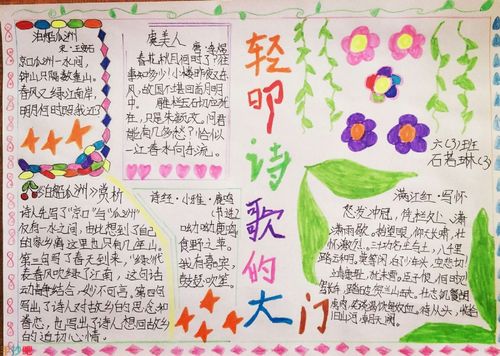 泊船瓜洲
宋·王安石
京口瓜洲一水间,
钟山只隔数重山。
春风又绿江南岸,
明月何时照我还?
虞美人
春花秋月何时了?往
事知多少!小楼昨夜又东
风,故国不堪回首月明
中。雕栏玉砌应犹
在,只是朱颜改。问君
能有几多愁?恰似
一江春水向东流。
轻叩诗歌的大门
六(3)班
石若琳(3)
《泊船瓜洲》赏析
诗人先写了“京口”与“瓜洲”
仅有一水之间,由此想到了自己
的家乡离这里也只有几座山。
第三句写了春天到来,“绿”代
表春风吹绿了江南,这句话
动静结合,妙不可言。第四句
写出了诗人对故乡的思念和
眷恋,也写出了诗人想回故乡
的迫切心情。
诗经·小雅·鹿鸣
(节选)
呦呦鹿鸣,
食野之苹。
我有嘉宾,
鼓瑟吹笙。
满江红·写怀
怒发冲冠,凭栏处、潇
潇雨歇。抬望眼,仰天长啸,壮
怀激烈。三十功名尘与土,八千里
路云和月。莫等闲,白了少年头,空悲切!
靖康耻,犹未雪。臣子恨,何时灭!